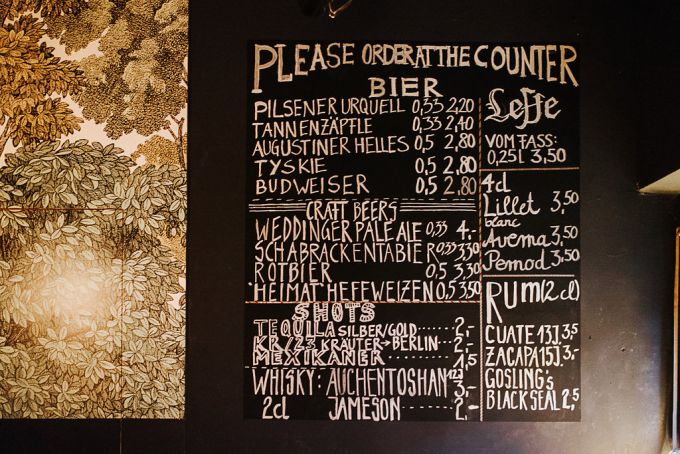 PLEASE ORDER AT THE COUNTER
BIER
PILSENER URQUELL 0,33 2,20
TANNENZÄPFLE 0,33 2,40
AUGUSTINER HELLES 0,5 2,80
TYSKIE 0,5 2,80
BUDWEISER 0,5 2,80
CRAFT BEERS
WEDDINGER PALE ALE 0,33 4,-
SCHABRACKENTABIER 0,33 3,30
ROTBIER 0,5 3,30
HEIMAT HEFEWEIZEN 0,5 3,50
SHOTS
TEQUILLA SILBER/GOLD ...... 2,-
KR/23 KRÄUTER→BERLIN .. 2,-
MEXIKANER 1,5
WHISKY: AUCHENTOSHAN 3,-
2cl JAMESON ...... 2,-
Leffe
VOM FASS:
0,25l 3,50
4cl
Lillet 3,50
blanc
Averna 3,50
Pernod 3,50
RUM (2cl)
CUATE 13J. 3,5
ZACAPA 15J. 3,-
GOSLINGS
BLACK SEAL 2,5